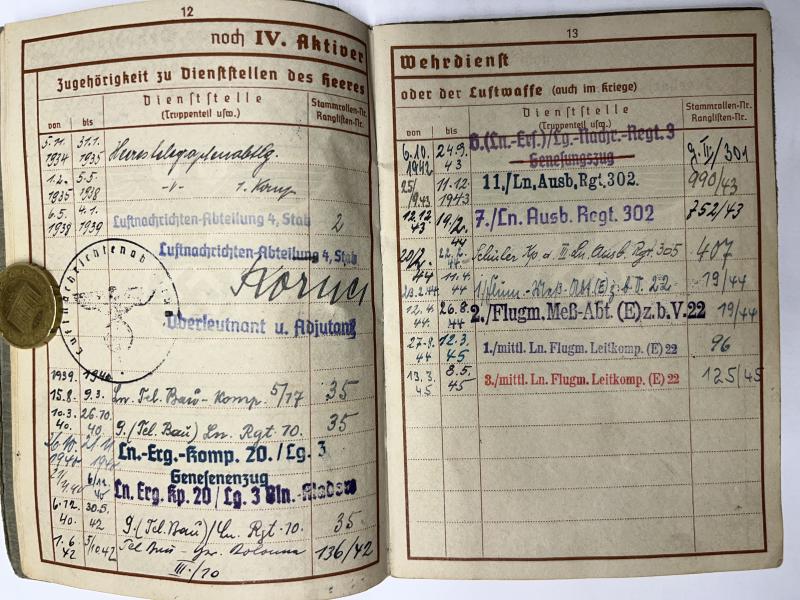 12
noch IV. Aktiver
Zugehörigkeit zu Dienststellen des Heeres
von bis
Dienststelle
(Truppenteil usw.)
Stammrollen-Nr.
Ranglisten-Nr.
5.11. 1934 31.1. 1935 Heerestelegrafenabtlg.
1.2. 1935 5.5. 1938 -"- 1. Komp
6.5. 1938 4.1. 1939 Luftnachrichten-Abteilung 4, Stab 2
Luftnachrichten-Abteilung 4, Stab
Oberleutnant u. Adjutant
Luftnachrichtenab
1939. 1940
15.8. 9.3. Ln. Tel. Bau-Komp. 5/17 35
10.3. 40. 26.10. 40 9.(Tel. Bau) Ln. Rgt. 10. 35
1940 1940 Ln.-Erg.-Komp. 20./Lg. 3
Genesenenzug
Ln. Erg. Kp. 20/Lg. 3 Bln.-Kladow
6.12. 40. 30.5. 42 9.(Tel. Bau)/Ln. Rgt. 10. 35
1.6. 42 5/10 42 Tel Bau- Kolonne 136/42
III./10
13
Wehrdienst
oder der Luftwaffe (auch im Kriege)
von bis
Dienststelle
(Truppenteil usw.)
Stammrollen-Nr.
Ranglisten-Nr.
6.10. 1942 24.9. 43 8.(Ln.-Ers.)/Lg.-Nachr.-Regt. 3
Genesungszug
25/9 43 11.12. 1943 11./Ln. Ausb. Rgt. 302. 990/43
12.12. 43 19/2. 44 7./Ln. Ausb. Regt. 302 752/43
20/2. 44 22.2. 44 Schüler Kp d. III. Ln. Ausb. Rgt. 305 407
23.2.44 11.4. 44 (E) z.b.V. 22 19/44
12.4. 44. 26.8. 44 2./Flugm. Meß-Abt. (E) z.b.V. 22 19/44
27.8. 44 12.3. 45 1./mittl. Ln. Flugm. Leitkomp. (E) 22 96
13.3. 45. 8.5. 45 3./mittl. Ln. Flugm. Leitkomp. (E) 22 125/45